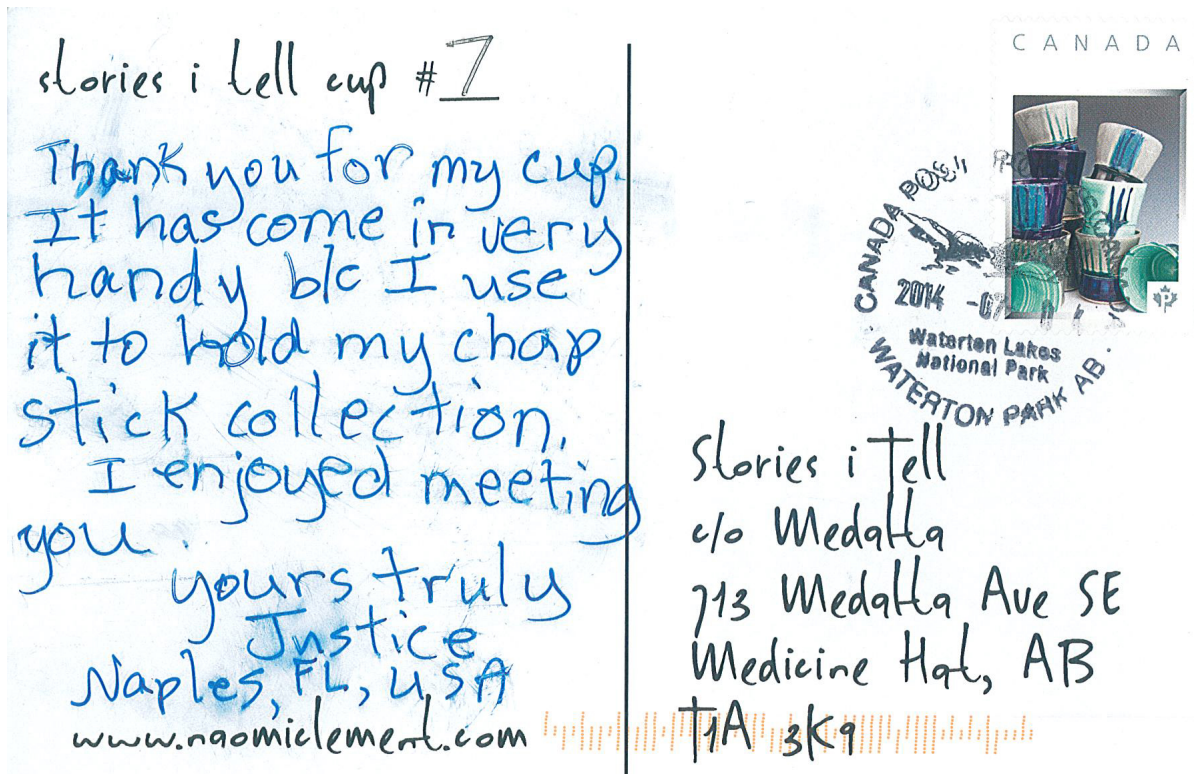 stories i tell cup #7
Thank you for my cup.
It has come in very
handy b/c I use
it to hold my chap
stick collection.
I enjoyed meeting
you.
yours truly
Justice
Naples, FL, USA
www.naomiclement.com
CANADA
P
CANADA POST
2014 -07
Waterton Lakes
National Park
WATERTON PARK AB.
Stories i Tell
c/o Medalta
713 Medalta Ave SE
Medicine Hat, AB
T1A 3K9